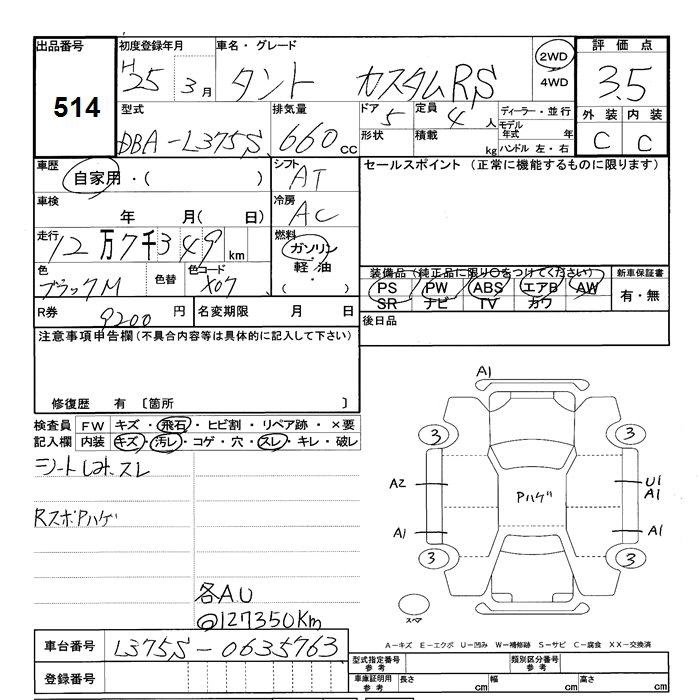 出品番号 初度登録年月 車名・グレード 評価点
514
H25 3月 タント カスタムRS 2WD 4WD 3.5
型式 排気量 ドア 定員 ディーラー・並行 外装 内装
DBA-L375S 660cc 5 4人 モデル年式 年 C C
形状 積載 kg ハンドル 左・右
車歴 シフト セールスポイント (正常に機能するものに限ります)
自家用・( ) AT
車検 冷房
年 月( 日) AC
走行 燃料
12万7千349km ガソリン・軽油・( )
色 色替 色コード 装備品 (純正品に限り○をつけてください) 新車保証書
ブラックM X07 PS PW ABS エアB AW 有・無
SR ナビ TV カワ
R券 9200円 名変期限 月 日 後日品
注意事項申告欄 (不具合内容等は具体的に記入して下さい)
修復歴 有 〔箇所 〕
検査員 FW キズ・飛石・ヒビ割・リペア跡・×要
記入欄 内装 キズ・汚レ・コゲ・穴・スレ・キレ・破レ
シートしみ、スレ
RスポPハゲ
各AU
@127350Km
A1
3 3
A2 Pハゲ U1
A1
A1 A1
3 3
スペア
A-キズ E-エクボ U-凹み W-補修跡 S-サビ C-腐食 XX-交換済
車台番号 L375S-0635763
登録番号
型式指定番号 参考 類別区分番号 参考
車庫証明用 参考 長さ cm 幅 cm 高さ cm